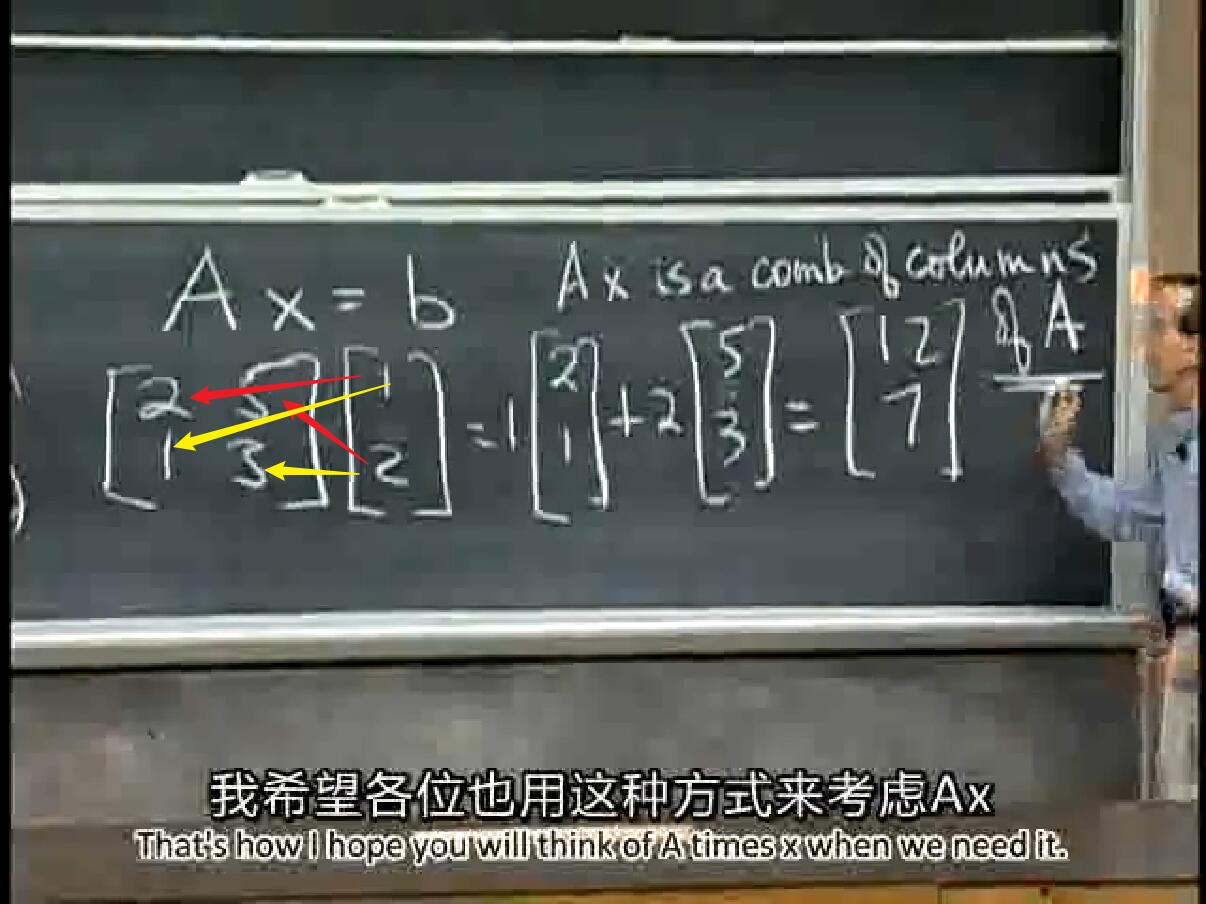 Ax = b
Ax is a comb of columns
of A
[2 5; 1 3] [1; 2] = 1 [2; 1] + 2 [5; 3] = [12; 7]
我希望各位也用这种方式来考虑Ax
That's how I hope you will think of A times x when we need it.